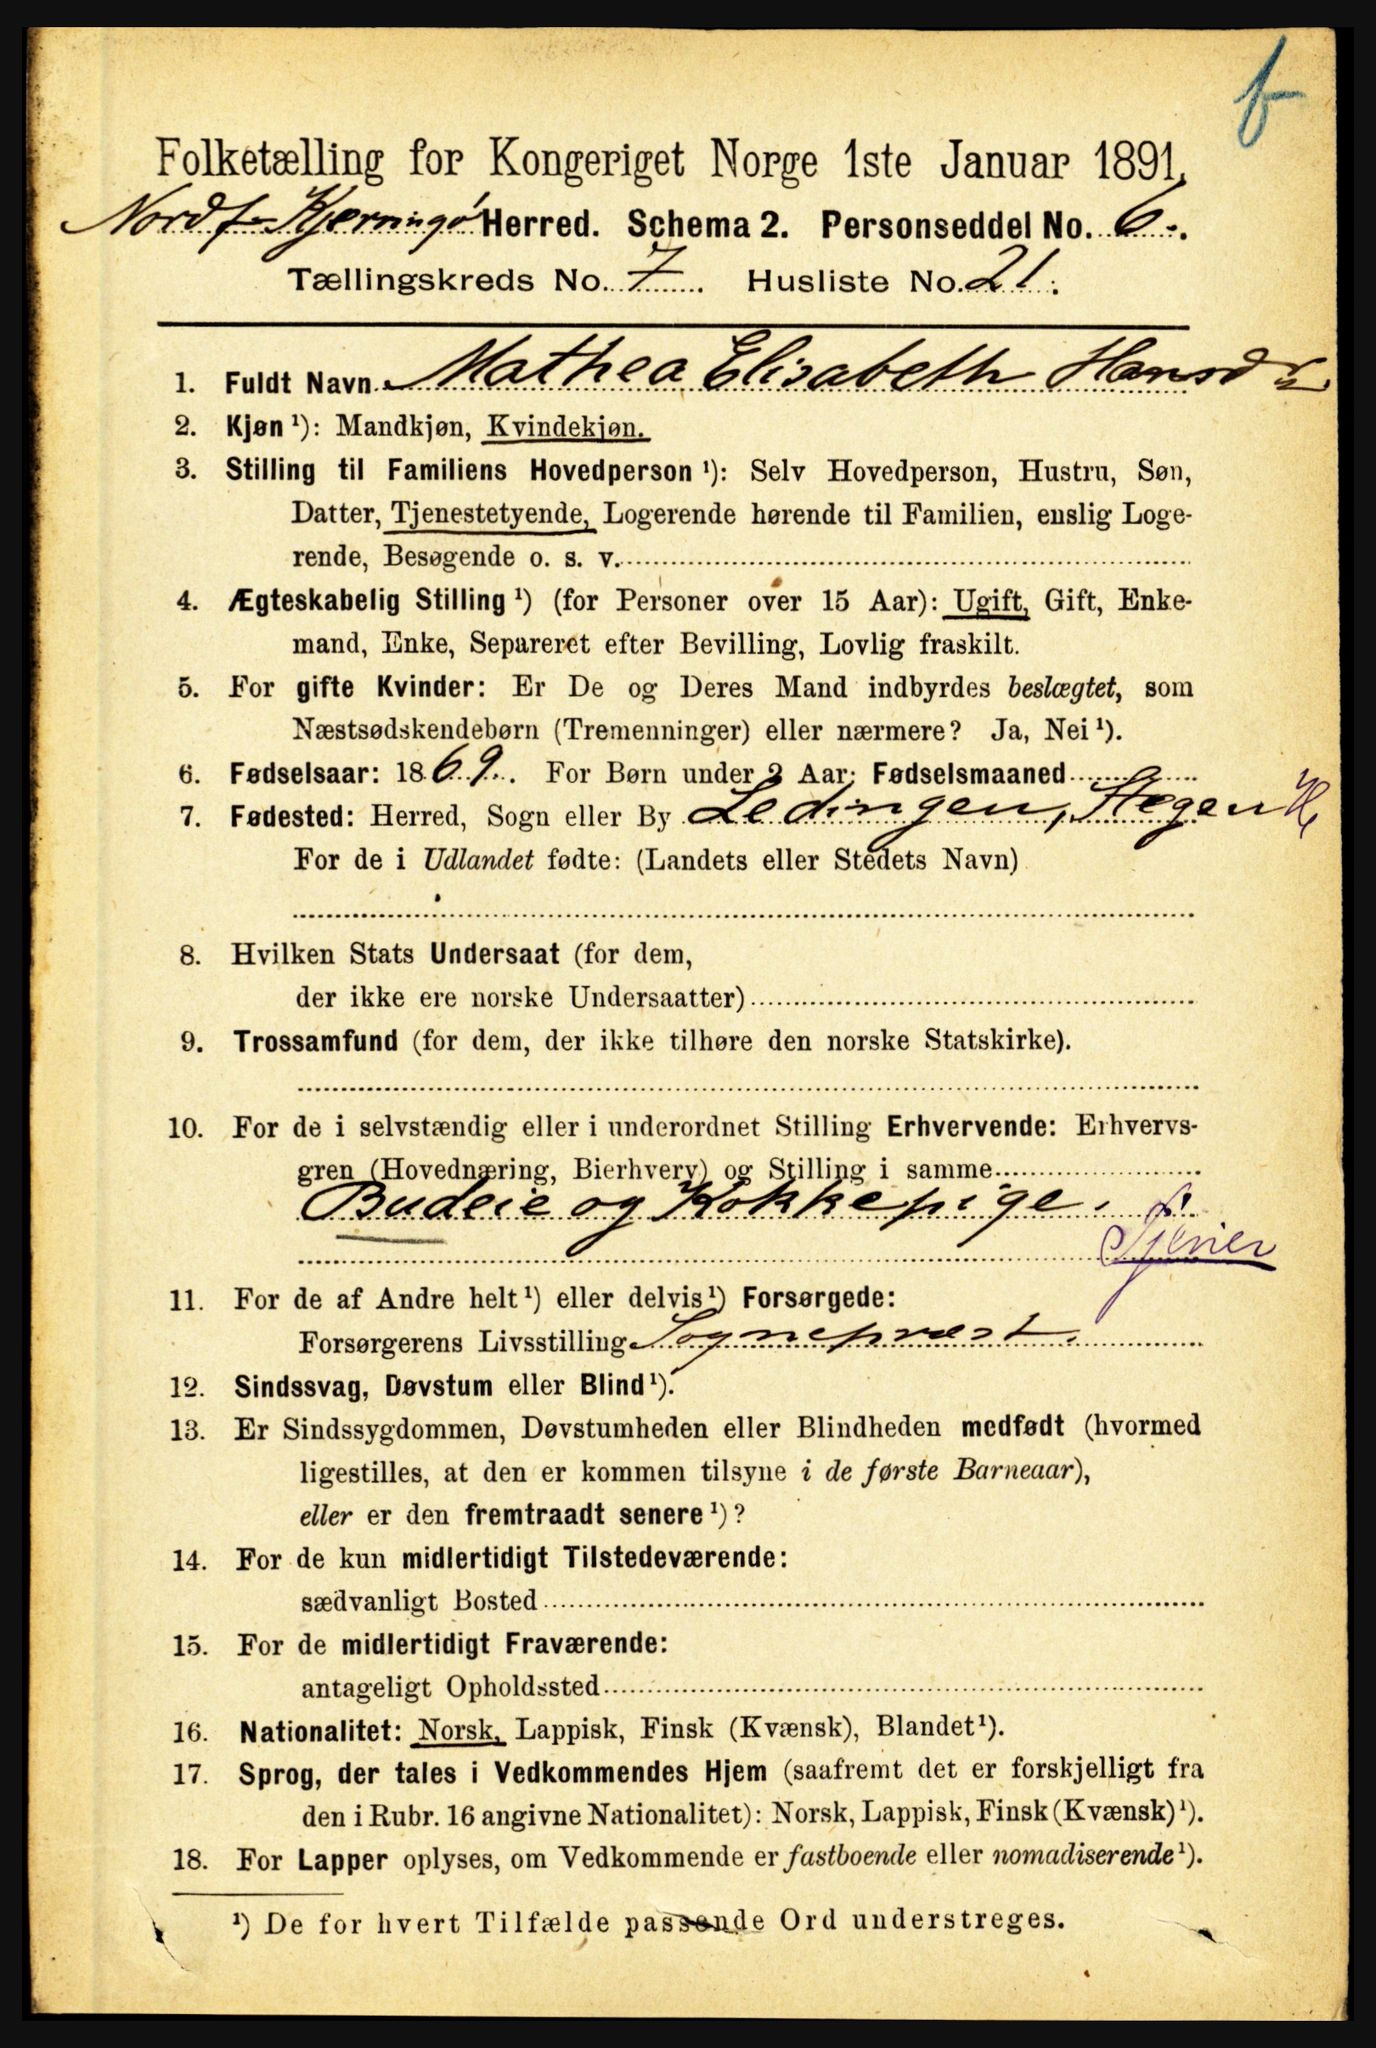 f
Folketælling for Kongeriget Norge 1ste Januar 1891.
Nordf-Kjerringø Herred. Schema 2. Personseddel No. 6.
Tællingskreds No. 7. Husliste No. 21.
1. Fuldt Navn Mathea Elisabeth Hansdr
2. Kjøn¹): Mandkjøn, Kvindekjøn.
3. Stilling til Familiens Hovedperson¹): Selv Hovedperson, Hustru, Søn,
Datter, Tjenestetyende, Logerende hørende til Familien, enslig Loge-
rende, Besøgende o. s. v.
4. Ægteskabelig Stilling¹) (for Personer over 15 Aar): Ugift, Gift, Enke-
mand, Enke, Separeret efter Bevilling, Lovlig fraskilt.
5. For gifte Kvinder: Er De og Deres Mand indbyrdes beslægtet, som
Næstsødskendebørn (Tremenninger) eller nærmere? Ja, Nei¹).
6. Fødselsaar: 1869. For Børn under 2 Aar: Fødselsmaaned
7. Fødested: Herred, Sogn eller By Ledingen, Stegen
For de i Udlandet fødte: (Landets eller Stedets Navn)
8. Hvilken Stats Undersaat (for dem,
der ikke ere norske Undersaatter)
9. Trossamfund (for dem, der ikke tilhøre den norske Statskirke).
10. For de i selvstændig eller i underordnet Stilling Erhvervende: Erhvervs-
gren (Hovednæring, Bierhverv) og Stilling i samme
Budeie og Kokkepige.
11. For de af Andre helt¹) eller delvis¹) Forsørgede:
Forsørgerens Livsstilling Sognepræst.
12. Sindssvag, Døvstum eller Blind¹).
13. Er Sindssygdommen, Døvstumheden eller Blindheden medfødt (hvormed
ligestilles, at den er kommen tilsyne i de første Barneaar),
eller er den fremtraadt senere¹)?
14. For de kun midlertidigt Tilstedeværende:
sædvanligt Bosted
15. For de midlertidigt Fraværende:
antageligt Opholdssted
16. Nationalitet: Norsk, Lappisk, Finsk (Kvænsk), Blandet¹).
17. Sprog, der tales i Vedkommendes Hjem (saafremt det er forskjelligt fra
den i Rubr. 16 angivne Nationalitet): Norsk, Lappisk, Finsk (Kvænsk)¹).
18. For Lapper oplyses, om Vedkommende er fastboende eller nomadiserende¹).
¹) De for hvert Tilfælde passende Ord understreges.